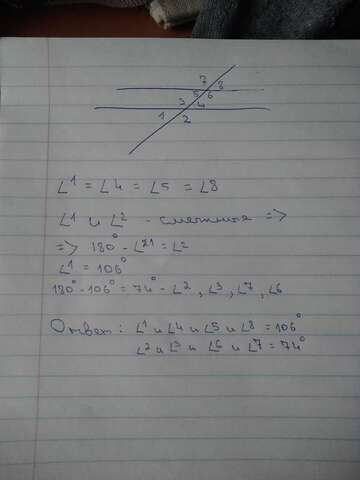 7 8
5 6
3 4
1 2
∠1 = ∠4 = ∠5 = ∠8
∠1 и ∠2 - смежные =>
=> 180° - ∠1 = ∠2
∠1 = 106°
180° - 106° = 74° - ∠2, ∠3, ∠7, ∠6
Ответ: ∠1 и ∠4 и ∠5 и ∠8 = 106°
∠2 и ∠3 и ∠6 и ∠7 = 74°